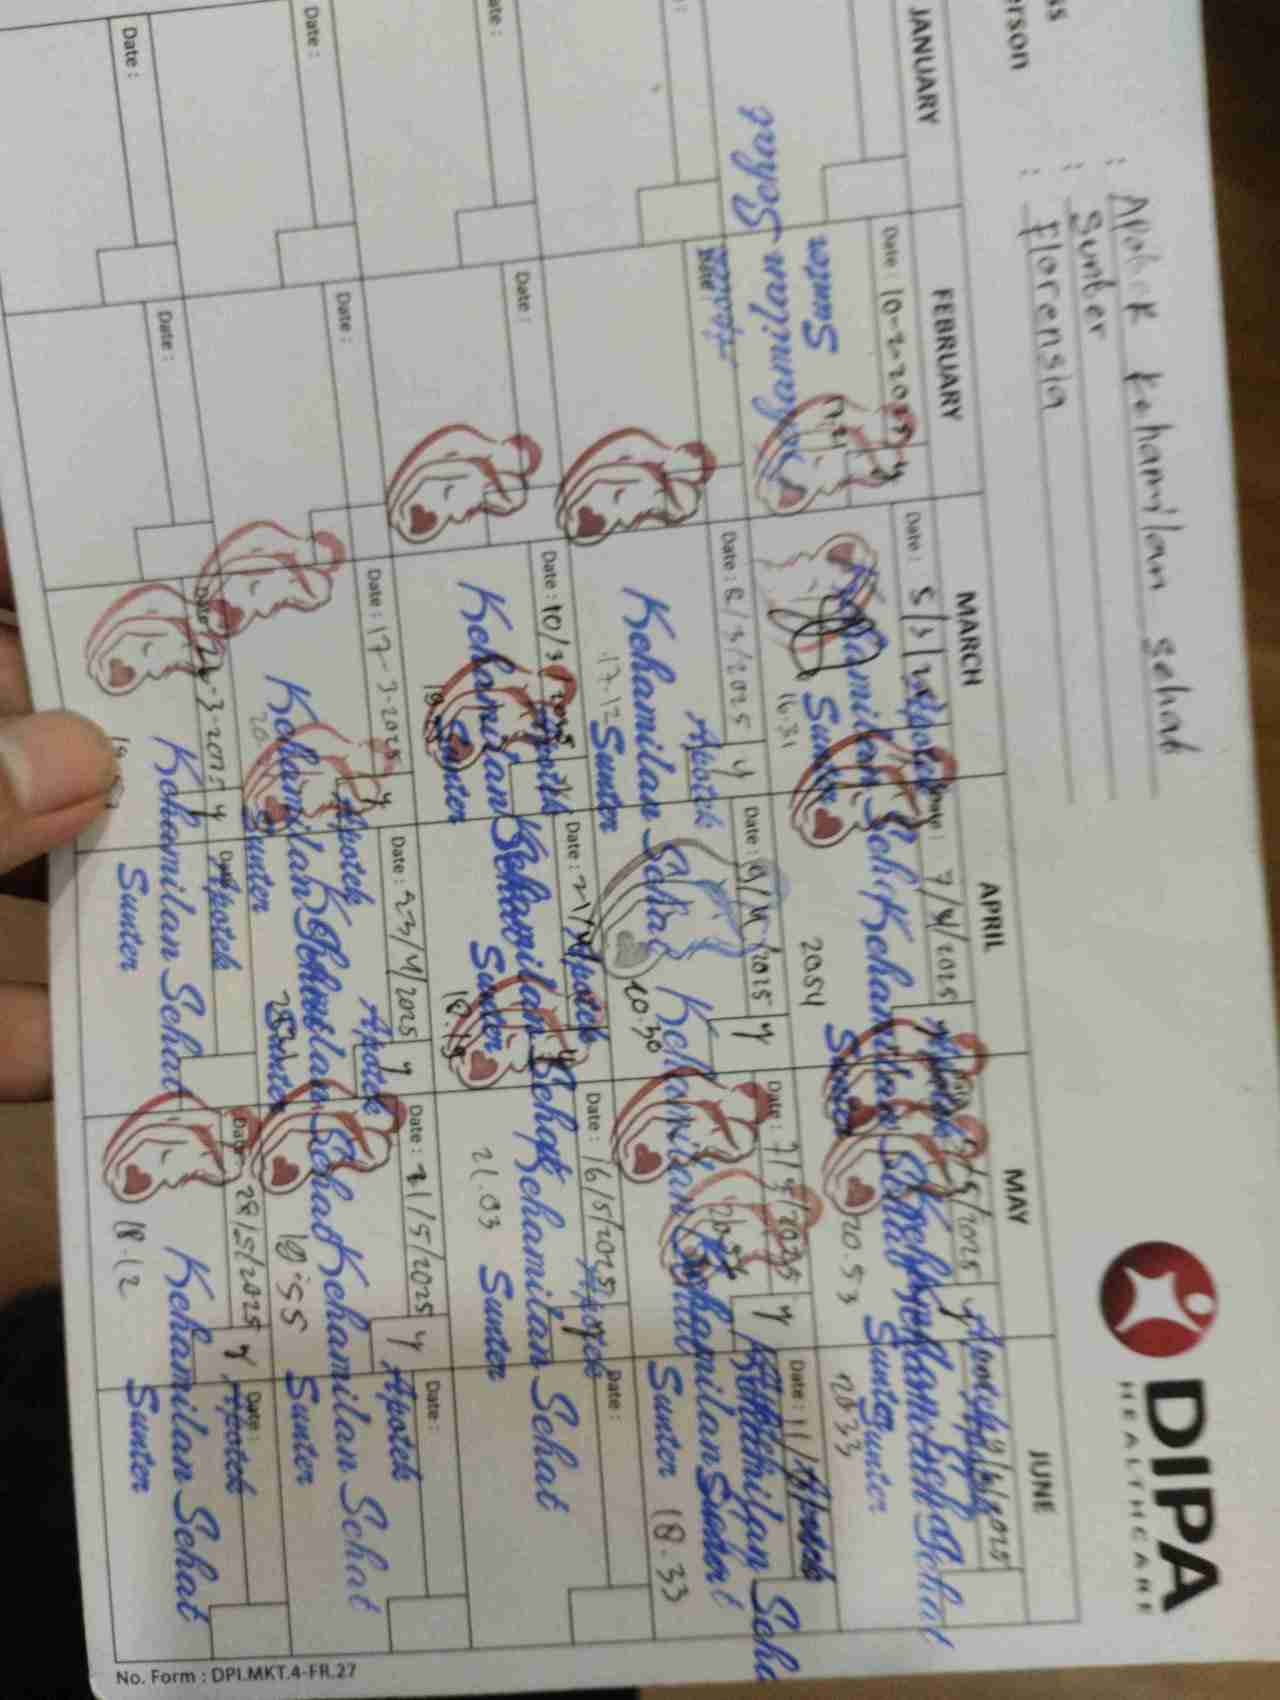 : Apotek Kehamilan Sehat
: Sunter
: Florensia
DIPA
HEALTHCARE
JANUARY
FEBRUARY
MARCH
APRIL
MAY
JUNE
Date : 10-2-2025 y
Kehamilan Sehat
Sunter
17.21
Date : 5/3/2025
Apotek
Kehamilan Sehat
Sunter
16.31
Date : 7/4/2025 y
Apotek
Kehamilan Sehat
Sunter
2054
/5/2025 y
Apotek
Kehamilan Sehat
Sunter
20.53
/6/2025
Kehamilan Sehat
Sunter
Date :
Date : 5/3/2025 y
Apotek
Kehamilan Sehat
Sunter
17.12
Date : 9/4/2025 y
Kehamilan Sehat
20.30
Date : 7/5/2025 y
Kehamilan Sehat
Sunter
Date : 11/
Apotek
Kehamilan Sehat
18.33
Date :
Date :
Date : 10/3/2025
Apotek
Kehamilan Sehat
Sunter
Date : 21/4
Apotek
Kehamilan Sehat
Sunter
18.19
Date : 16/5/2025 y
Apotek
Kehamilan Sehat
Sunter
21.03
Date :
Date :
Date :
Date : 17-3-2025 y
Apotek
Kehamilan Sehat
Sunter
Date : 23/4/2025 y
Apotek
Kehamilan Sehat
Sunter
Date : 21/5/2025 y
Apotek
Kehamilan Sehat
Sunter
18.55
Date :
Date :
Date :
-3-2025 y
Apotek
Kehamilan Sehat
Sunter
Date :
Date : 28/5/2025 y
Apotek
Kehamilan Sehat
Sunter
18.12
Date :
No. Form : DPI.MKT.4-FR.27